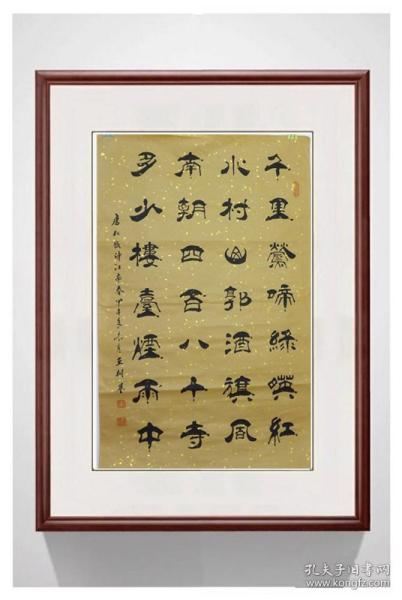 千里鶯啼綠暎紅
水村山郭酒旗風
南朝四百八十寺
多少樓臺煙雨中
唐杜牧詩江南春甲午
孔夫子旧书网
www.kongfz.com